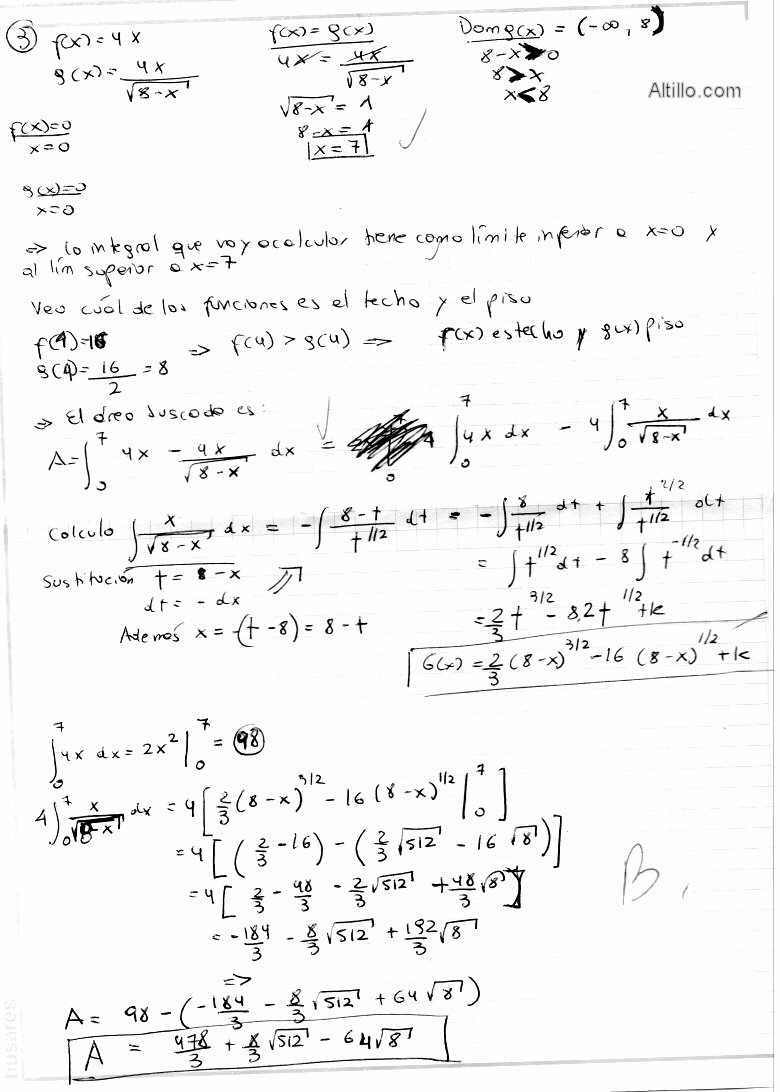 ③ f(x) = 4x
g(x) = 4x/√(8-x)
f(x) = g(x)
4x = 4x/√(8-x)
√(8-x) = 1
8-x = 1
x = 7
Dom g(x) = (-∞, 8)
8-x > 0
8 > x
x < 8
Altillo.com
f(x)=0
x=0
g(x)=0
x=0
⇒ la integral que voy a calcular tiene como límite inferior a x=0 y
al lím superior a x=7
Veo cuál de las funciones es el techo y el piso
f(4)=16
g(4)= 16/2 = 8
⇒ f(4) > g(4) ⇒ f(x) es techo y g(x) piso
⇒ El área buscada es:
A = ∫₀⁷ 4x - 4x/√(8-x) dx = ∫₀⁷ 4x dx - 4∫₀⁷ x/√(8-x) dx
Calculo ∫ x/√(8-x) dx = -∫ (8-t)/t^1/2 dt = -∫ 8/t^1/2 dt + ∫ t^2/2/t^1/2 dt
= ∫ t^1/2 dt - 8∫ t^-1/2 dt
= 2/3 t^3/2 - 8.2t^1/2 + k
G(x) = 2/3 (8-x)^3/2 - 16 (8-x)^1/2 + k
Sustitución t = 8-x
dt = -dx
Además x = -(t-8) = 8-t
∫₀⁷ 4x dx = 2x² |₀⁷ = 98
4∫₀⁷ x/√(8-x) dx = 4[2/3 (8-x)^3/2 - 16 (8-x)^1/2 |₀⁷]
= 4[(2/3 - 16) - (2/3 √512 - 16 √8)]
= 4[2/3 - 48/3 - 2/3 √512 + 48/3 √8]
= -184/3 - 8/3 √512 + 192/3 √8
B.
⇒
A = 98 - (-184/3 - 8/3 √512 + 64 √8)
A = 478/3 + 8/3 √512 - 64√8
husares